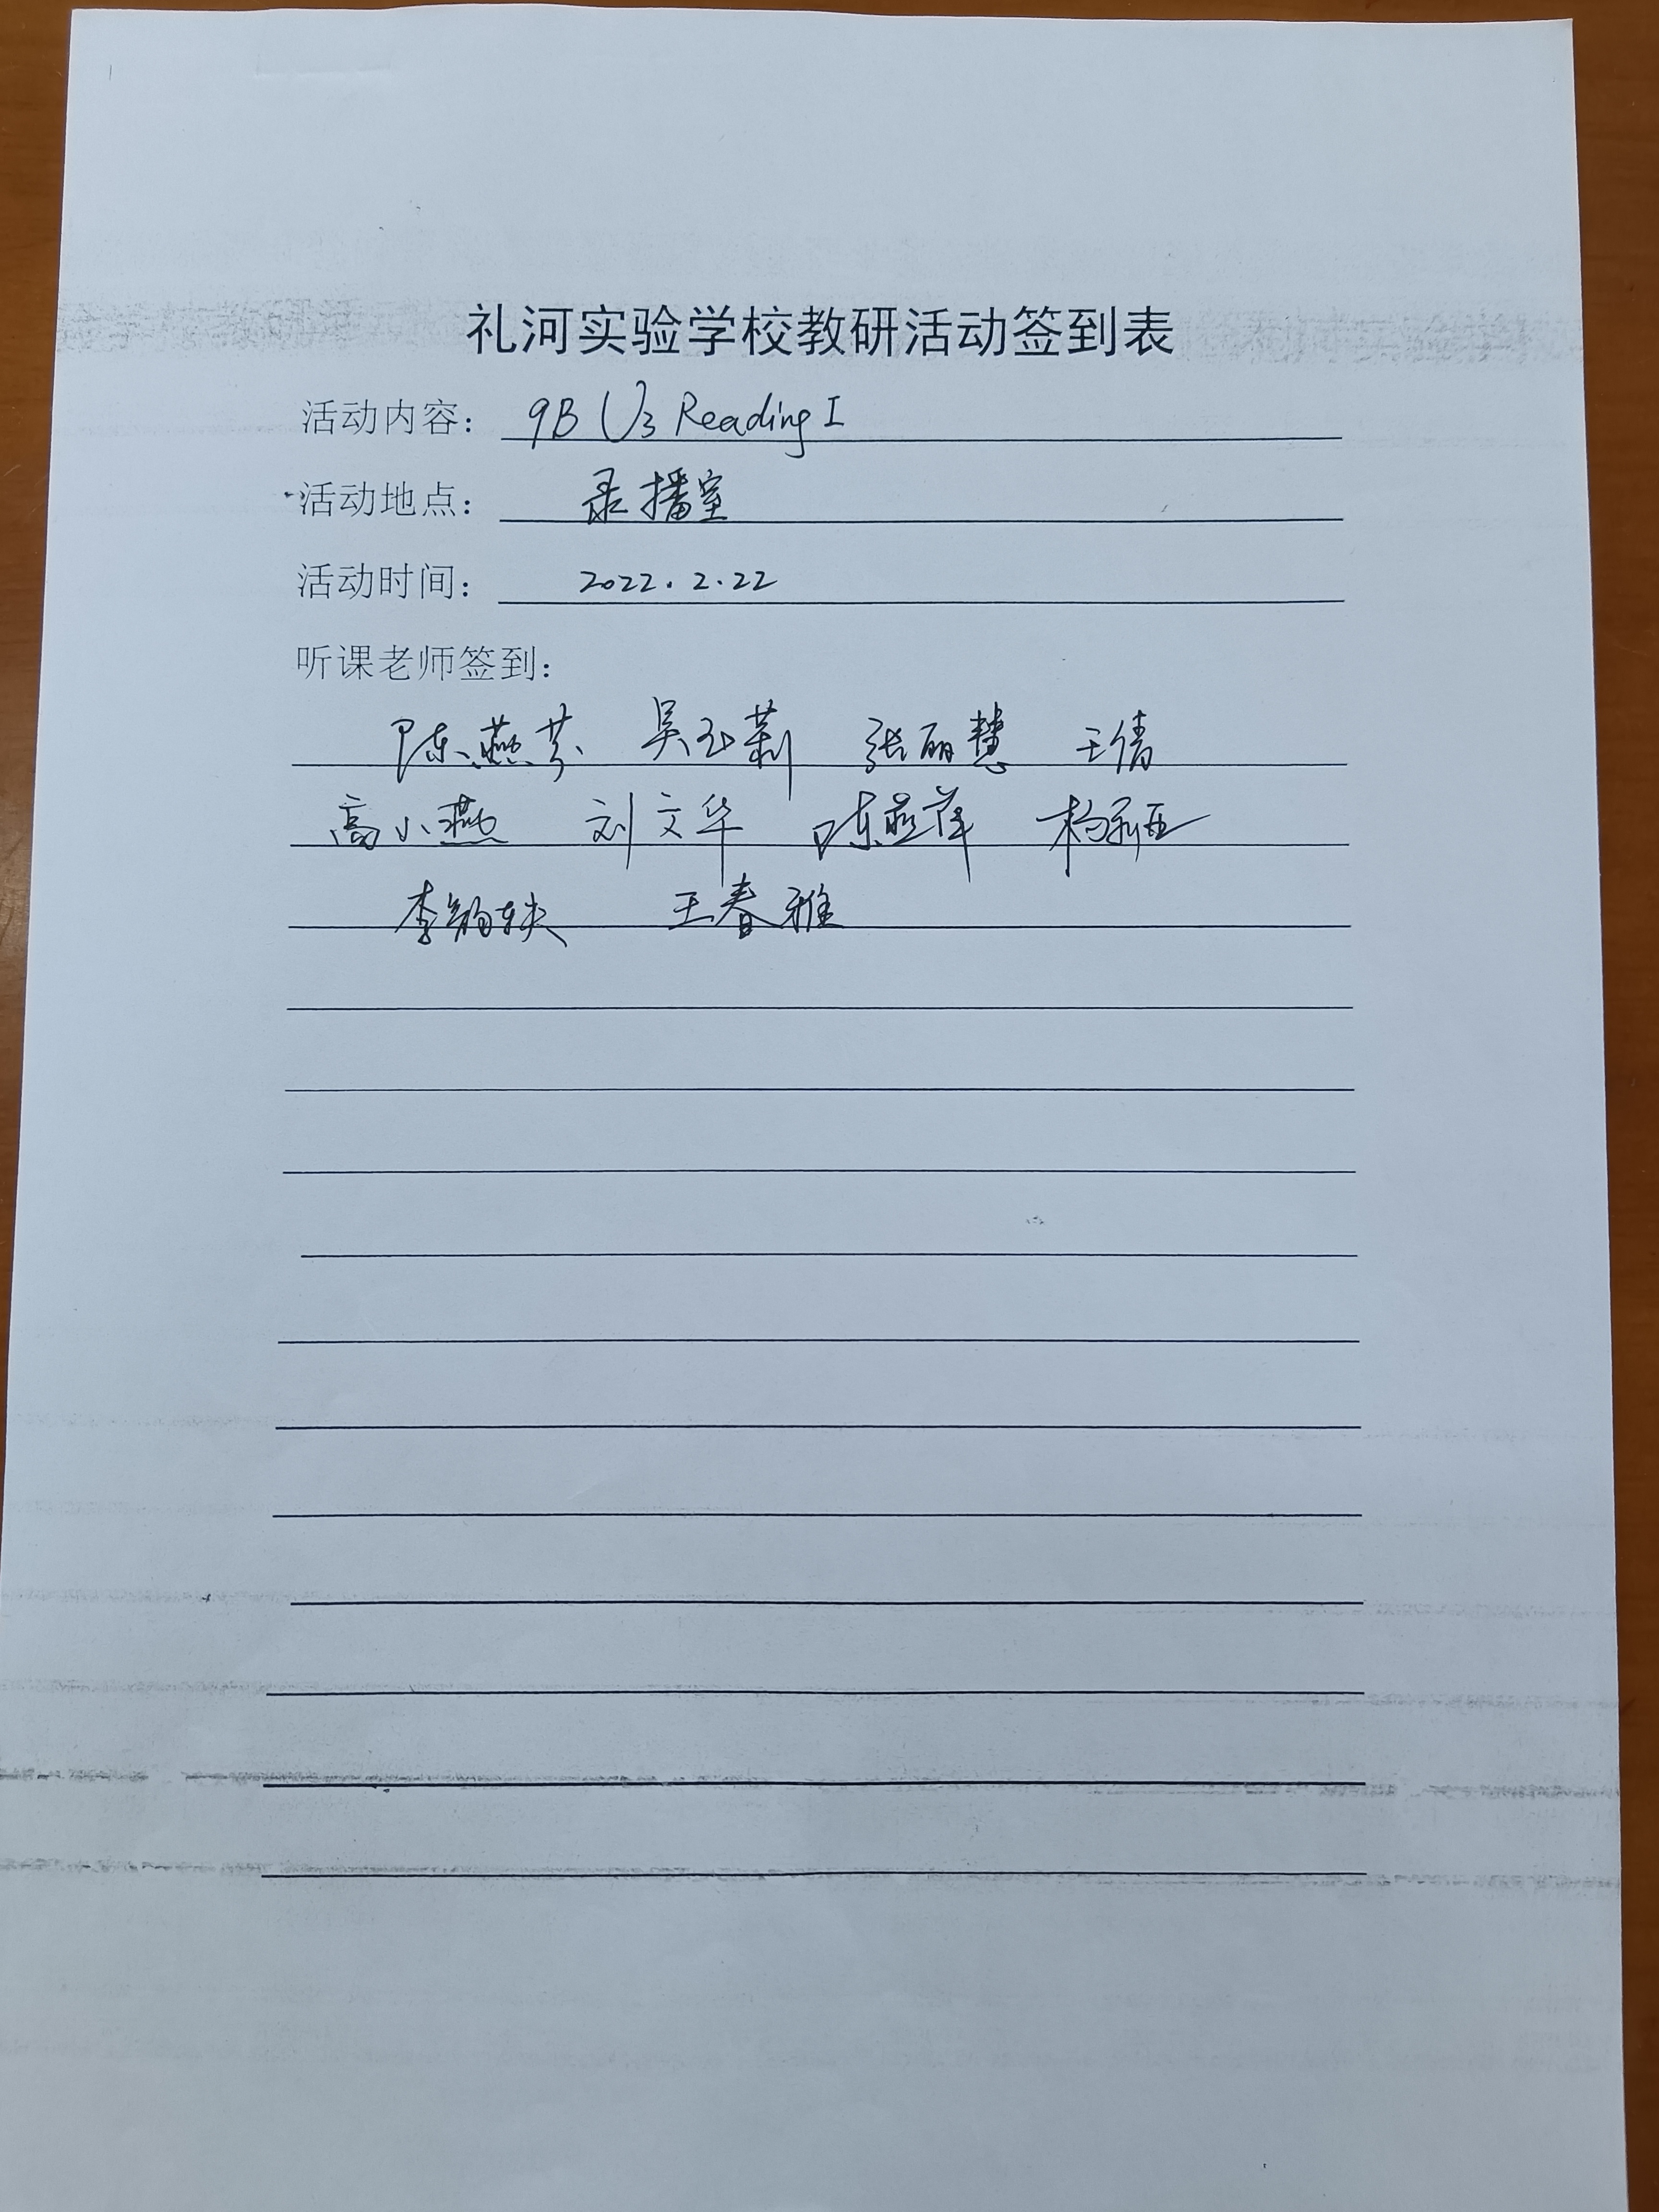 礼河实验学校教研活动签到表
活动内容: 9B U3 Reading I
活动地点: 录播室
活动时间: 2022.2.22
听课老师签到:
陈燕芬 吴玉莉 张丽慧 王倩
高小燕 刘文华 陈燕萍
王春雅